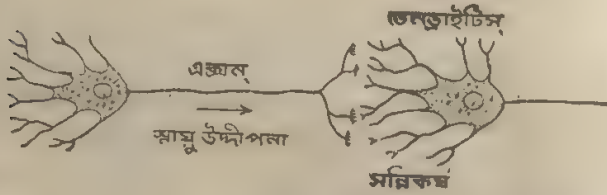 ডেনড্রাইটিস্
এক্সন্
স্নায়ু উদ্দীপনা
সন্নিকর্ষ